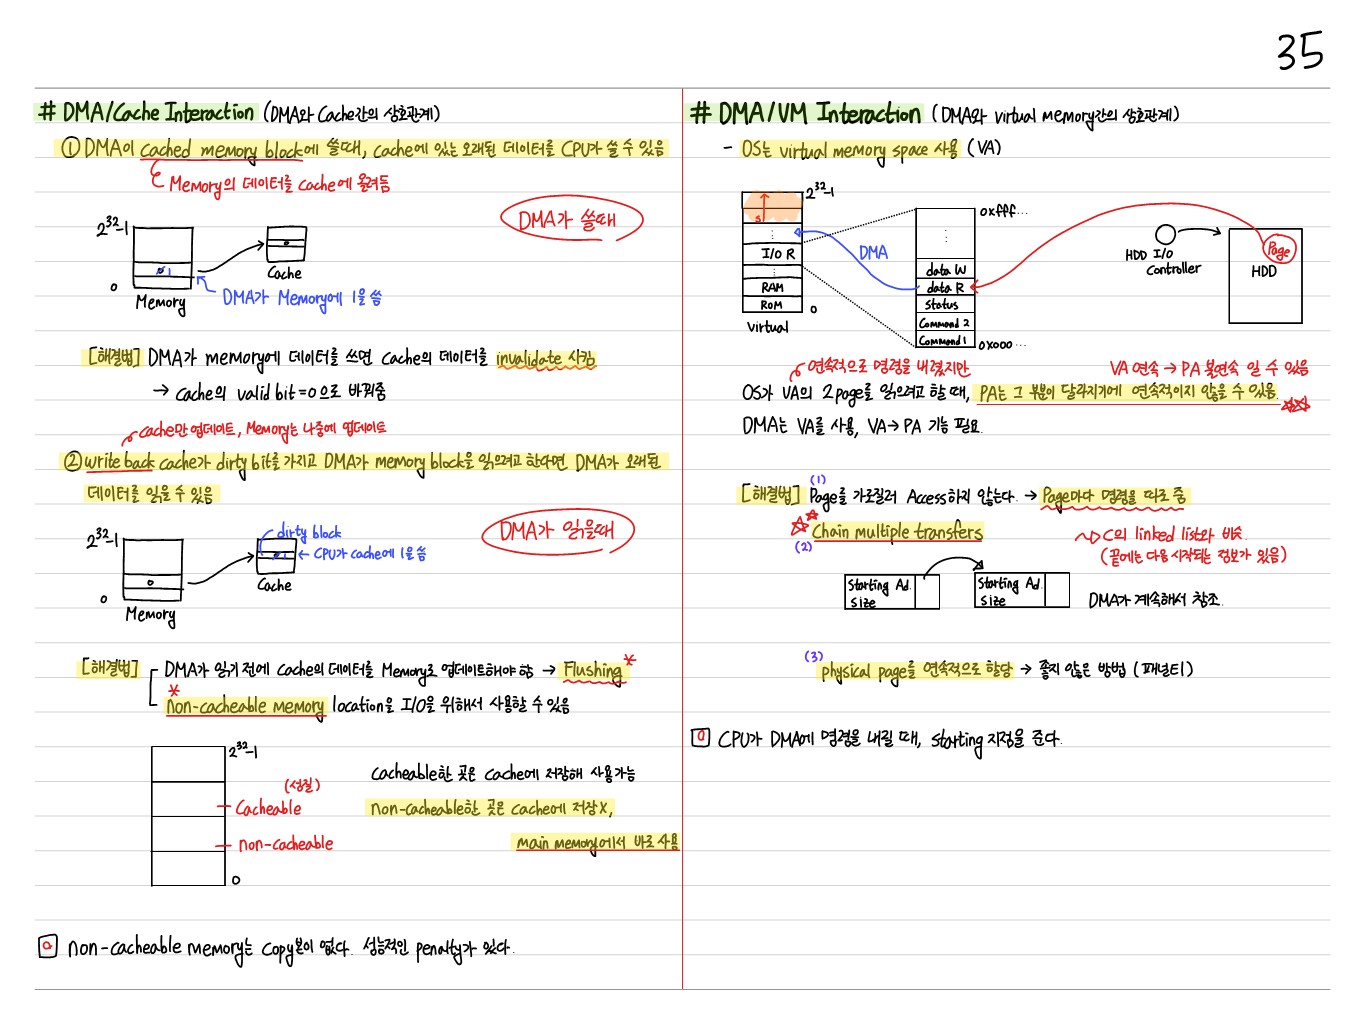 35
# DMA/Cache Interaction (DMA와 Cache간의 상호관계)
① DMA이 cached memory block에 쓸때, Cache에 있는 오래된 데이터를 CPU가 쓸 수 있음
Memory의 데이터를 cache에 올려둠
DMA가 쓸때
2^32-1
0
Memory
Cache
DMA가 Memory에 1을 씀
[해결법] DMA가 memory에 데이터를 쓰면 Cache의 데이터를 invalidate 시킴
→ Cache의 valid bit = 0으로 바꿔줌
Cache만 업데이트, Memory는 나중에 업데이트
② write back cache가 dirty bit를 가지고 DMA가 memory block을 읽으려고 한다면, DMA가 오래된
데이터를 읽을 수 있음
DMA가 읽을때
2^32-1
0
Memory
dirty block
← CPU가 cache에 1을 씀
Cache
[해결법] DMA가 읽기 전에 Cache의 데이터를 Memory로 업데이트해야 함 → Flushing *
* non-cacheable memory location을 I/O을 위해서 사용할 수 있음
2^32-1
(성질)
Cacheable
non-cacheable
0
Cacheable한 곳은 Cache에 저장해 사용가능
non-cacheable한 곳은 cache에 저장X,
main memory에서 바로 사용
Q non-cacheable memory는 copy본이 없다. 성능적인 penalty가 있다.
# DMA/VM Interaction (DMA와 virtual memory간의 상호관계)
- OS는 virtual memory space 사용 (VA)
2^32-1
s
I/O R
RAM
ROM
0
Virtual
DMA
0xfff...
data W
data R
Status
Command 2
Command 1
0x000...
HDD I/O
Controller
Page
HDD
연속적으로 명령을 내렸지만
VA 연속 → PA 불연속 일 수 있음
OS가 VA의 2page를 읽으려고 할 때, PA는 그 부분이 달라지기에 연속적이지 않을 수 있음.
DMA는 VA를 사용, VA→PA 기능 필요.
[해결법] (1) Page를 가로질러 Access하지 않는다. → Page마다 명령을 따로 줌
(2) Chain multiple transfers
C의 linked list와 비슷
(끝에는 다음 시작되는 정보가 있음)
Starting Ad.
size
Starting Ad.
size
DMA가 계속해서 참조.
(3) physical page를 연속적으로 할당 → 좋지 않은 방법 (패널티)
Q CPU가 DMA에 명령을 내릴 때, starting 지점을 준다.